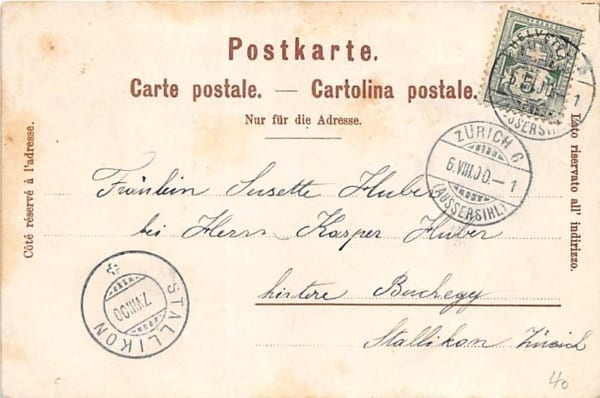 Postkarte.
Carte postale. — Cartolina postale.
Nur für die Adresse.
Côté réservé à l'adresse.
Lato riservato all' indirizzo.
HELVETIA
5
ZÜRICH 6
6.VIII.00.–1
(AUSSERSIHL)
Fräulein Susette Huber
bei Herrn Kasper Huber
hintere Buchegg
Stallikon Zürich
STALLIKON
7.VIII.00
40